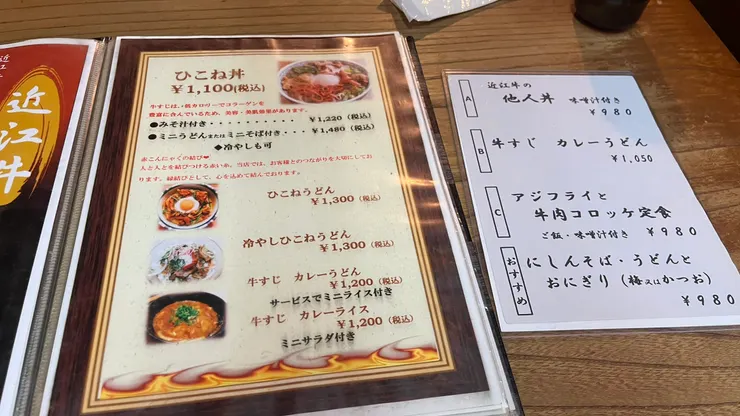 近江
近江牛
ひこね丼
¥1,100(税込)
牛すじは、低カロリーでコラーゲンを
豊富に含んでいるため、美容・美肌効果があります。
●みそ汁付き・・・・・・・・・¥1,220(税込)
●ミニうどんまたはミニそば付き・・・・¥1,480(税込)
◆冷やしも可
赤こんにゃくの結び❤
人と人とを結びつける赤い糸。当店では、お客様とのつながりを大切にしてお
ります。縁結びとして、心を込めて結んでおります。
ひこねうどん
¥1,300(税込)
冷やしひこねうどん
¥1,300(税込)
牛すじ カレーうどん
¥1,200(税込)
サービスでミニライス付き
牛すじ カレーライス
¥1,200(税込)
ミニサラダ付き
A
近江牛の
他人丼 味噌汁付き
¥980
B
牛すじ カレーうどん
¥1,050
C
アジフライと
牛肉コロッケ定食
ご飯・味噌汁付き ¥980
おすすめ
にしんそば・うどんと
おにぎり(梅又はかつお)
¥980